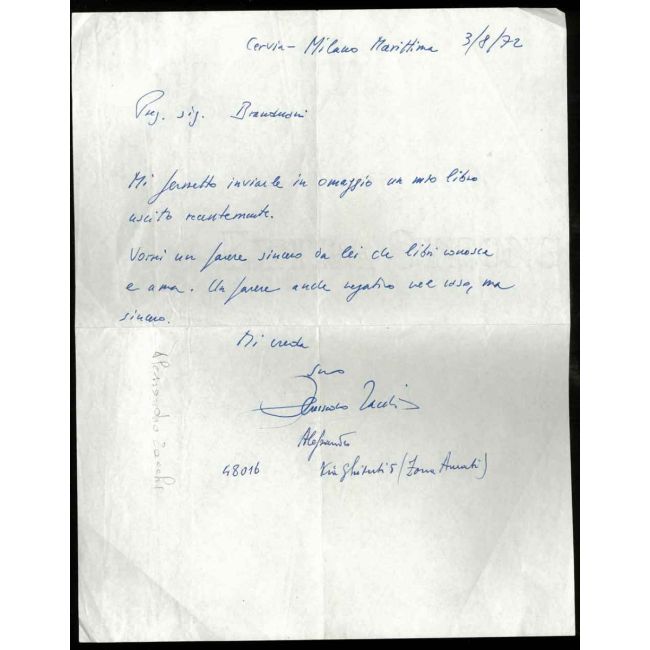 Cervia - Milano Marittima 3/8/72
Preg. sig. Branduani
Mi permetto inviarle in omaggio un mio libro
uscito recentemente.
Vorrei un parere sincero da lei che libri conosce
e ama. Un parere anche negativo nel caso, ma
sincero.
Mi creda
suo
Alessandro Zacchi
Alessandro
48016 Via (Zona Amati)
Alessandro Zacchi